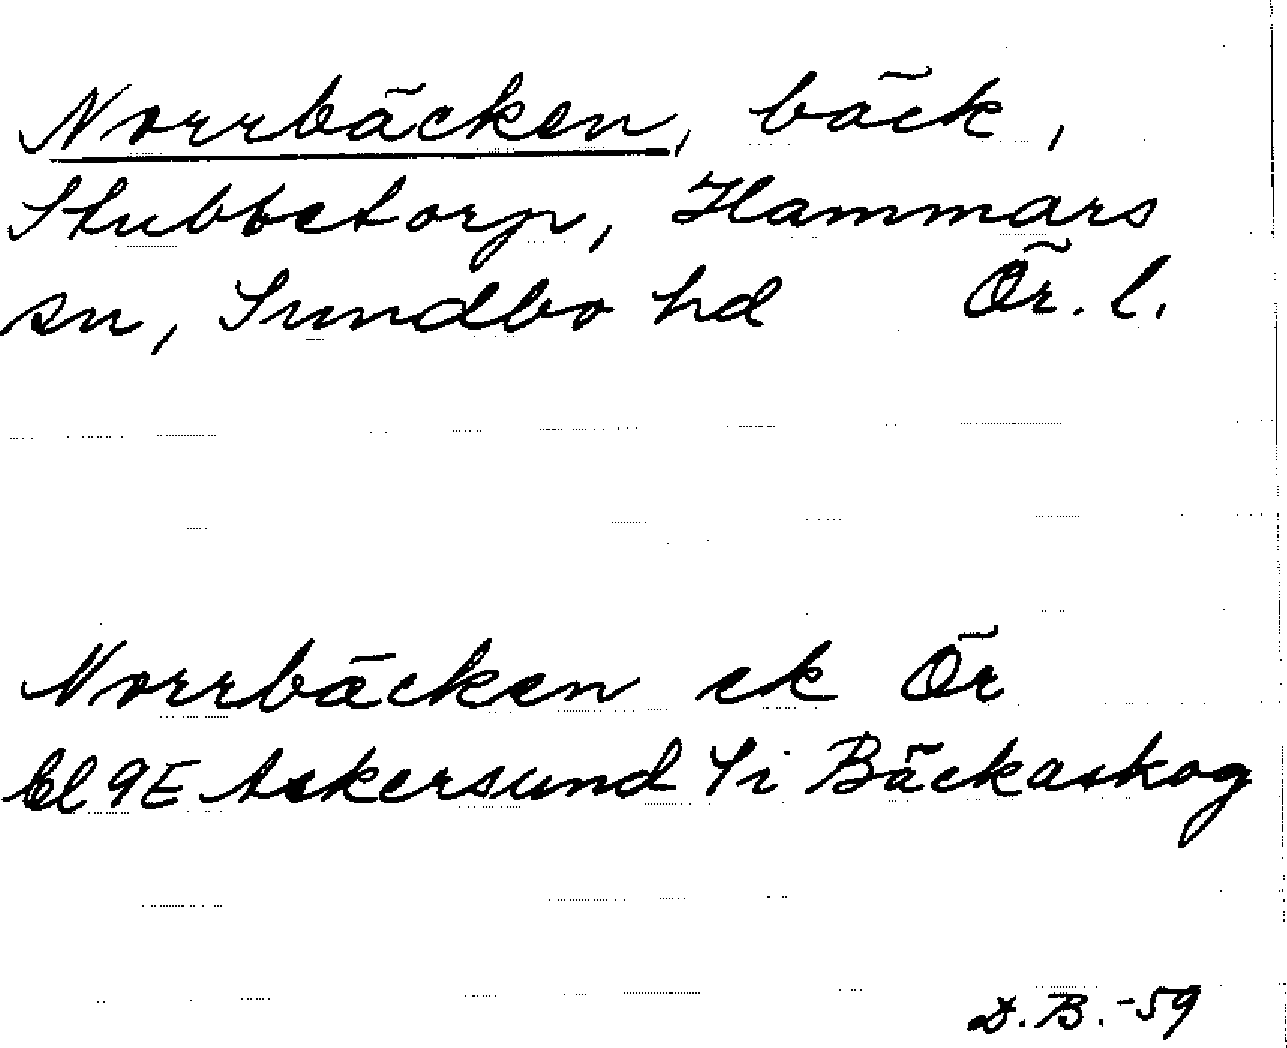 Norrbäcken, bäck,
Stubbetorp, Hammars
sn, Sundbo hd Ör. l.
Norrbäcken ek Ör
bl 9E Askersund Si Bäckaskog
D.B.-59